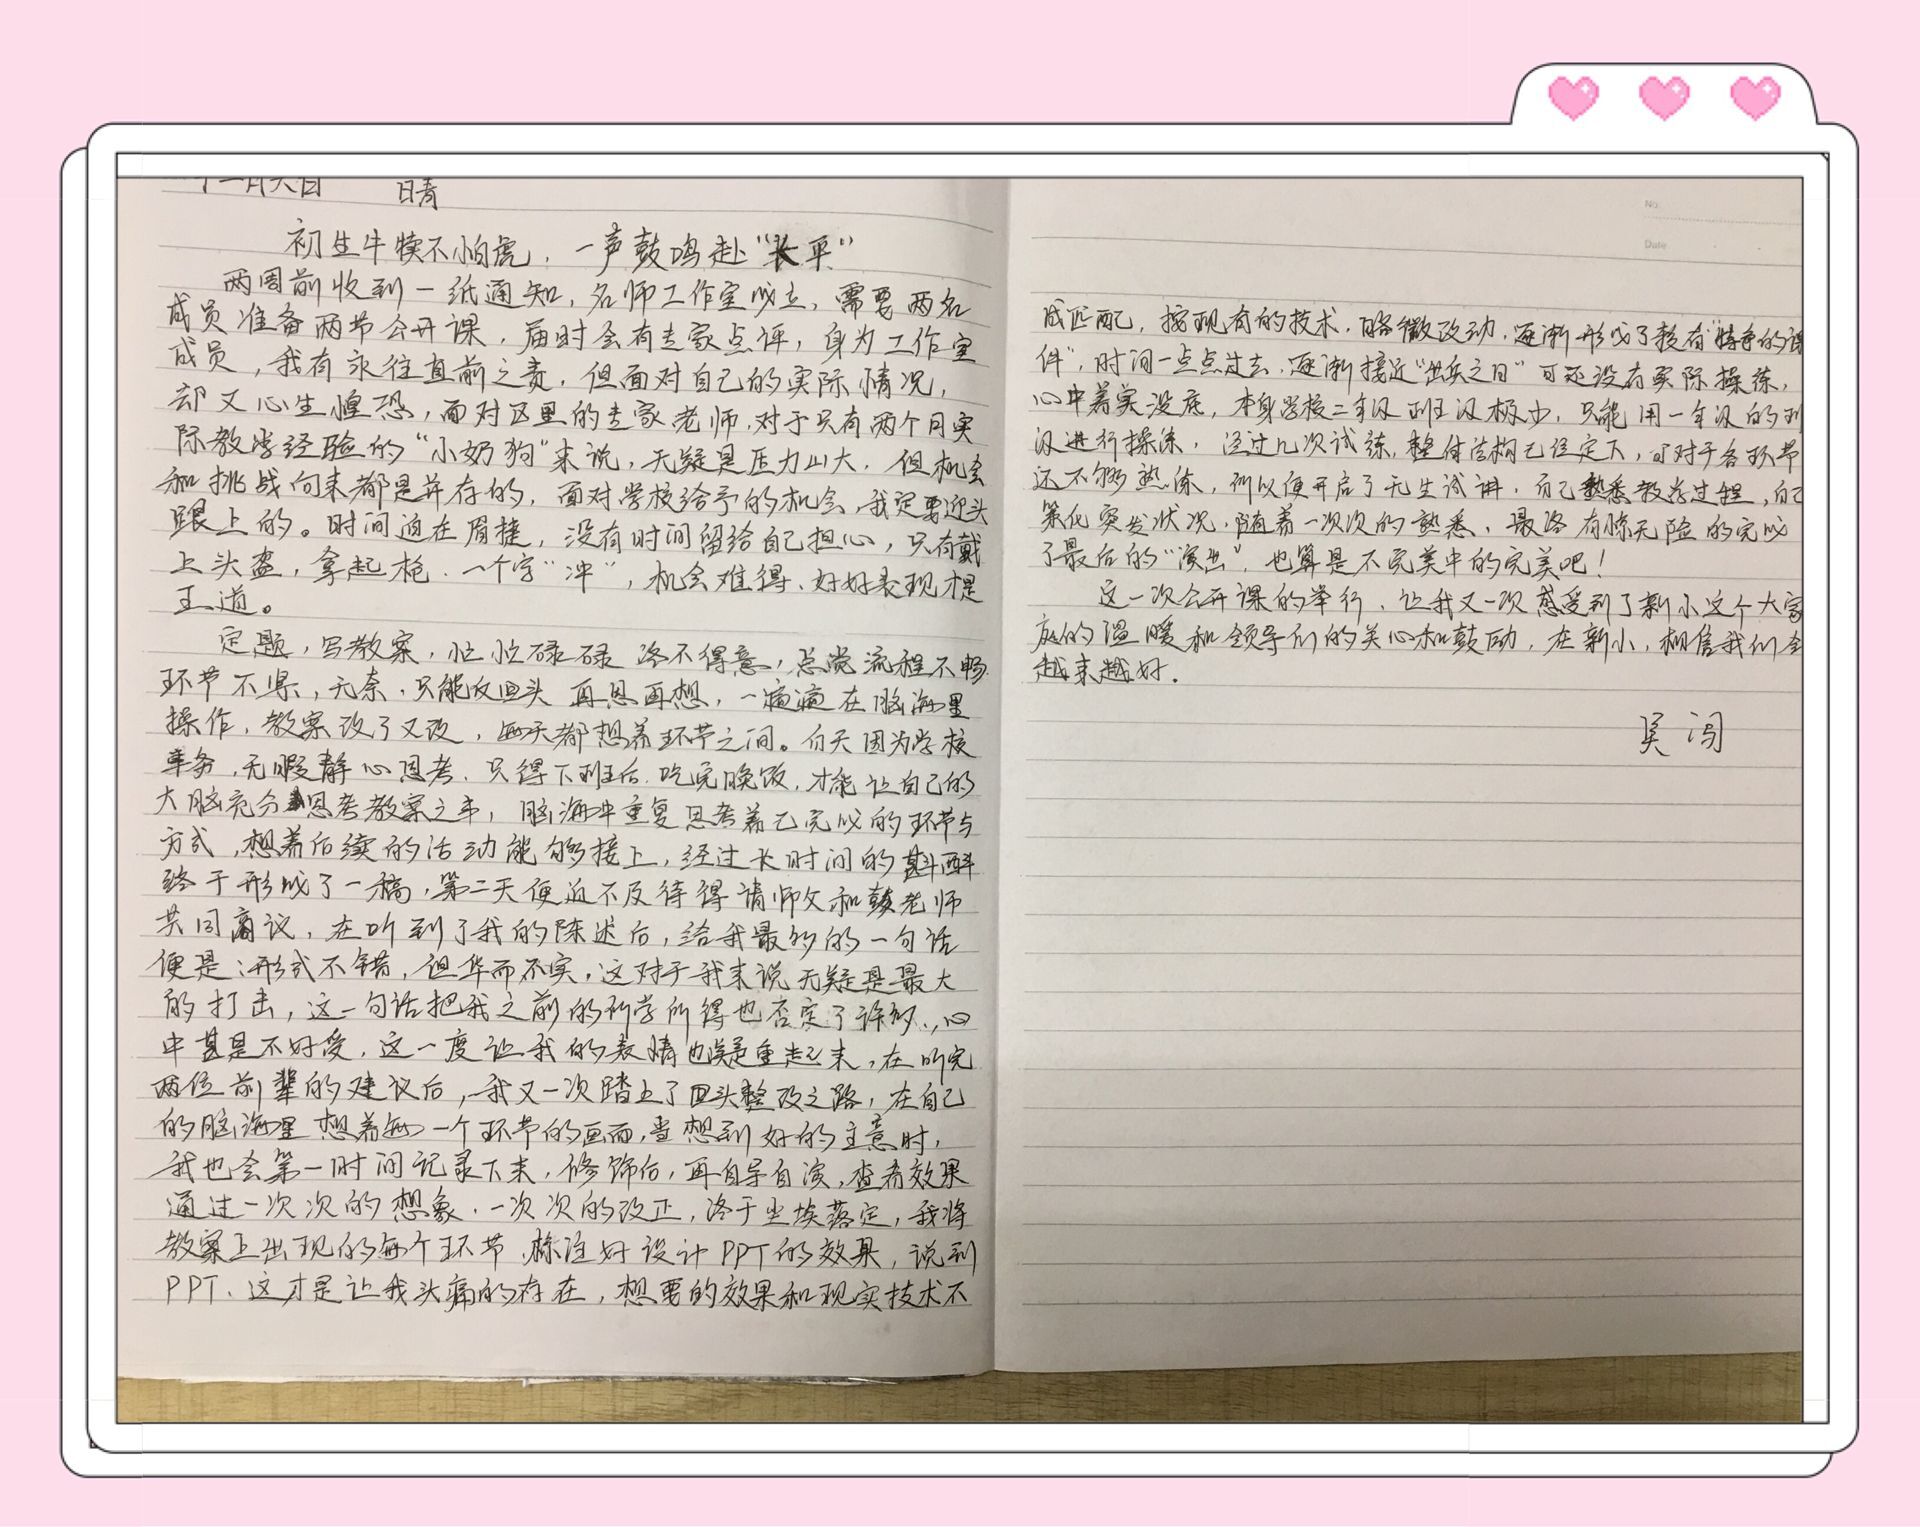 十一月六日 晴
初生牛犊不怕虎，一声鼓鸣赴“长平”
两周前收到一纸通知，名师工作室成立，需要两名
成员准备两节公开课，届时会有专家点评，身为工作室
成员，我有永往直前之责，但面对自己的实际情况，
却又心生惶恐，面对区里的专家老师，对于只有两个月实
际教学经验的“小奶狗”来说，无疑是压力山大，但机会
和挑战向来都是并存的，面对学校给予的机会，我定要迎头
跟上的。时间迫在眉捷，没有时间留给自己担心，只有戴
上头盔，拿起枪，一个字“冲”，机会难得，好好表现才是
王道。
定题，写教案，忙忙碌碌终不得意，总觉流程不畅
环节不紧，无奈，只能反回头再思再想，一遍遍在脑海里
操作，教案改了又改，每天都想着环节之间。白天因为学校
事务，无暇静心思考，只得下班后，吃完晚饭，才能让自己的
大脑充分思考教案之中，脑海中重复思考着已完成的环节与
方式，想着后续的活动能够接上，经过长时间的斟酌
终于形成了一稿，第二天便迫不及待得请师父和老师
共同商议，在听到了我的陈述后，给我最多的一句话
便是：形式不错，但华而不实，这对于我来说无疑是最大
的打击，这一句话把我之前的所学所得也否定了许多，心
中甚是不好受，这一度让我的表情也凝重起来，在听完
两位前辈的建议后，我又一次踏上了回头整改之路，在自己
的脑海里想着每一个环节的画面，当想到好的主意时，
我也会第一时间记录下来，修饰后，再自导自演，查看效果
通过一次次的想象，一次次的改正，终于尘埃落定，我将
教案上出现的每个环节，标注好设计PPT的效果，说到
PPT，这才是让我头痛的存在，想要的效果和现实技术不
成匹配，按现有的技术，略微改动，逐渐形成了较有“特色的课
件”，时间一点点过去，逐渐接近“出兵之日”可还没有实际操练，
心中着实没底，本身学校二年级班级极少，只能用一年级的班
级进行操练，经过几次试练，整体结构已经定下，可对于各环节
还不够熟练，所以便开启了无生试讲，自己熟悉教学过程，自己
策化突发状况，随着一次次的熟悉，最终有惊无险的完成
了最后的“演出”，也算是不完美中的完美吧！
这一次公开课的举行，让我又一次感受到了新小这个大家
庭的温暖和领导们的关心和鼓励，在新小，相信我们会
越来越好．
吴闯
No.
Date